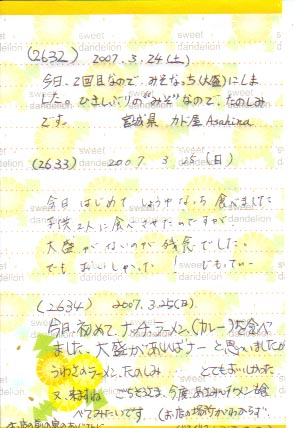 sweet dandelion
(2632) 2007.3.24(土)
今日、2回目なので、みそなっち(大盛)にしま
した。ひさしぶりの"みそ"なので、たのしみ
です。 宮城県 カト屋 Asahina
(2633) 2007 3 25(日)
今日 はじめて しょうゆなっち 食べました
子供2人に食べさせたのですが、
大盛がないのが残念でした。
でも おいしかって!
(2634) 2007.3.25(日)
今日、初めて、ナッチラーメン、(カレー)を食べ
ました、大盛があればナーと思いましたが
うわさのラーメン、たのしみ… とてもおいしかった
又、来ますね ごちそうさま、今度、みそラーメンも食
べてみたいです。 (お店の場所がわからず、